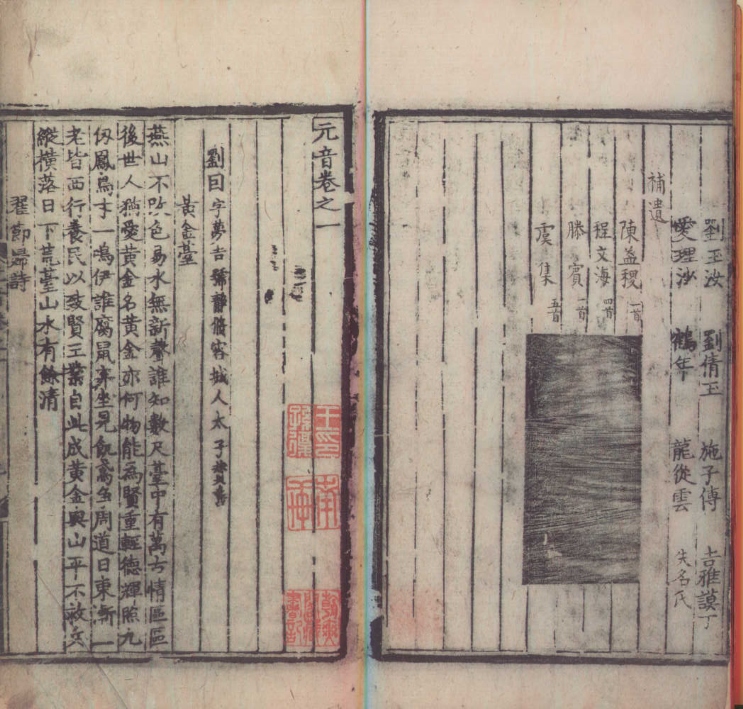 劉玉汝　劉倩玉　施子傳　吉雅謨丁
愛理沙　鶴年　龍從雲　失名氏
補遺
陳益稷 一首
程文海 四首
滕賓 一首
虞集 五首
元音卷之一
劉因 字夢吉號靜脩容城人太子
黃金臺
燕山不改色易水無新聲誰知數尺臺中有萬古情區區
後世人猶愛黃金名黃金亦何物能為賢重輕德輝照九
仞鳳鳥才一鳴伊誰腐鼠棄坐見飢鳶爭周道日東漸二
老皆西行養民以致賢王業自此成黃金與山平不救兵
縱橫落日下荒臺山水有餘清
翟節婦詩